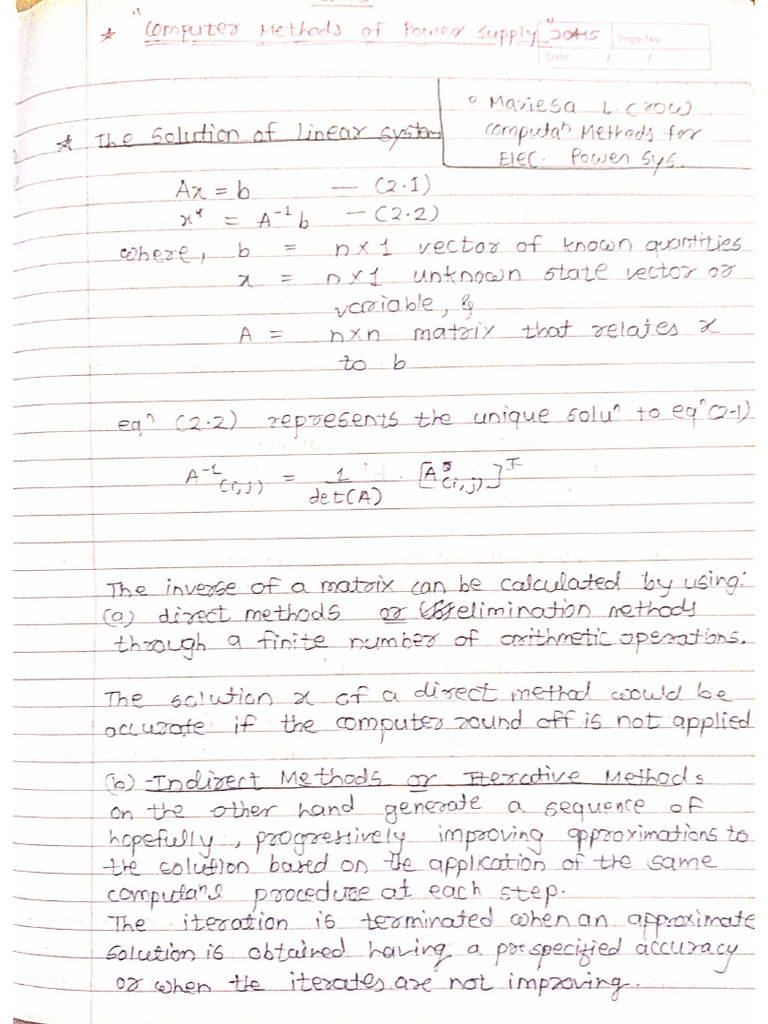 * "Computer Methods of Power Supply"
Page No.
Date / /
° Mariesa L. Crow
Computaⁿ Methods for
Elec. Power Sys.
* The Solution of Linear System
Ax = b — (2.1)
x* = A⁻¹ b — (2.2)
where, b = n×1 vector of known quantities
x = n×1 unknown state vector or
variable, &
A = n×n matrix that relates x
to b
eqⁿ (2.2) represents the unique soluⁿ to eqⁿ (2-1)
A⁻¹(i,j) = 1/det(A) · [A(i,j)]ᵀ
The inverse of a matrix can be calculated by using:
(a) direct methods or elimination methods
through a finite number of arithmetic operations.
The solution x of a direct method would be
accurate if the computer round off is not applied
(b) - Indirect Methods or Iterative Methods
on the other hand generate a sequence of
hopefully, progressively improving approximations to
the solution based on the application of the same
computaⁿl procedure at each step.
The iteration is terminated when an approximate
solution is obtained having a prespecified accuracy
or when the iterates are not improving.